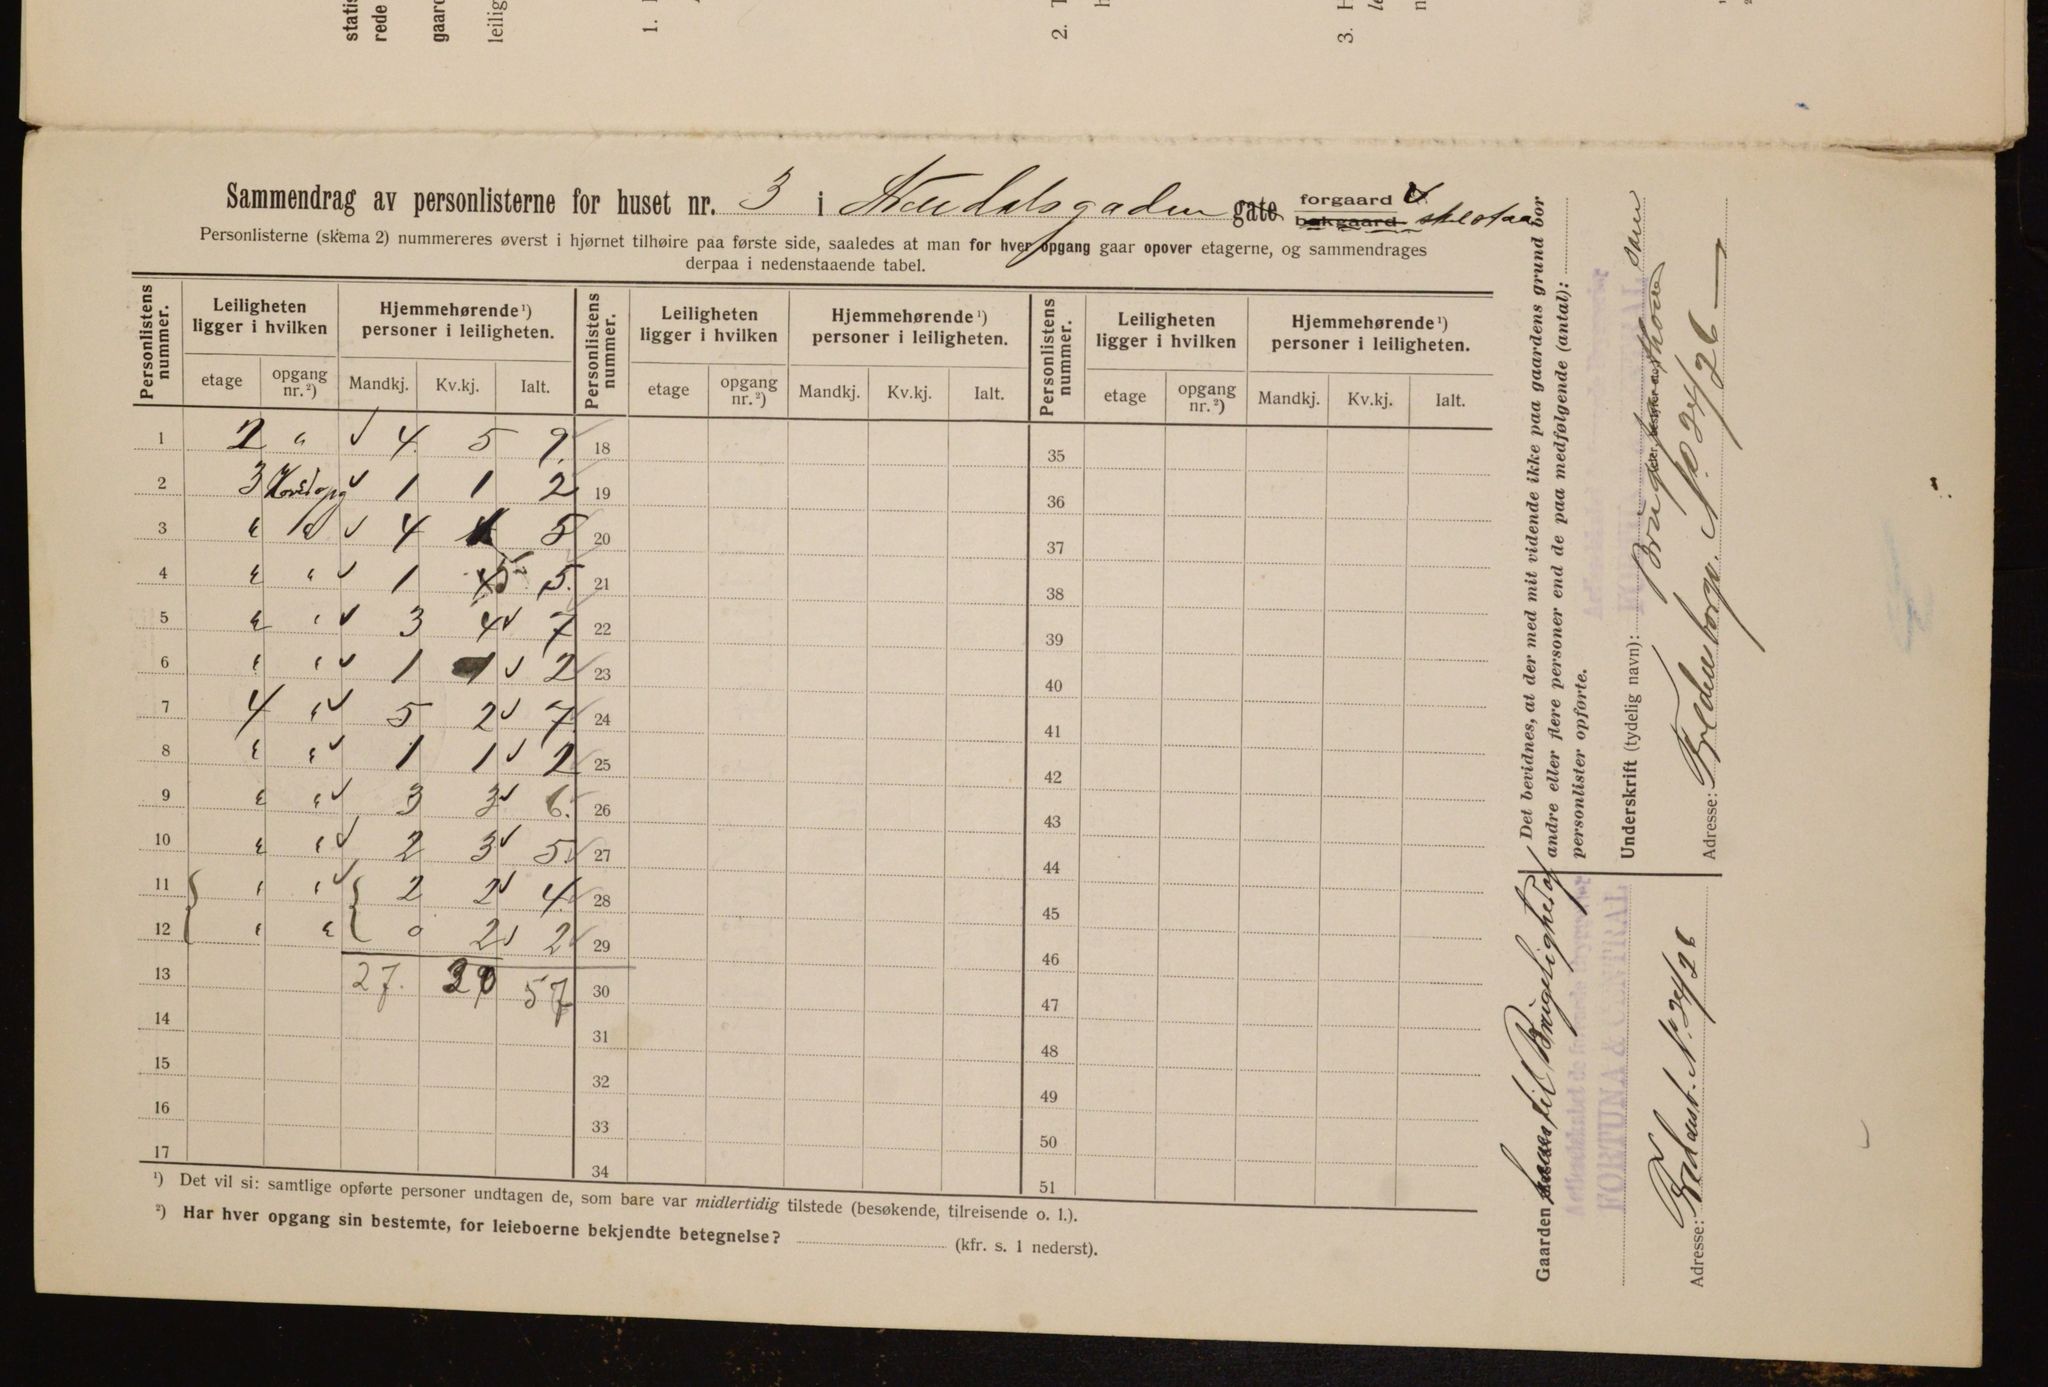 statis
rede
gaard
leilig
1.
2.
3.
Sammendrag av personlisterne for huset nr. 3 i Nordalsgaden gate forgaard bakgaard
Personlisterne (skema 2) nummereres øverst i hjørnet tilhøire paa første side, saaledes at man for hver opgang gaar opover etagerne, og sammendrages
derpaa i nedenstaaende tabel.
Personlistens nummer. Leiligheten ligger i hvilken Hjemmehørende ¹) personer i leiligheten. Personlistens nummer. Leiligheten ligger i hvilken Hjemmehørende ¹) personer i leiligheten. Personlistens nummer. Leiligheten ligger i hvilken Hjemmehørende ¹) personer i leiligheten.
etage opgang nr. ²) Mandkj. Kv.kj. Ialt. etage opgang nr. ²) Mandkj. Kv.kj. Ialt. etage opgang nr. ²) Mandkj. Kv.kj. Ialt.
1 2 " 4 5 9 18 35
2 3 1 1 2 19 36
3 " 4 1 5 20 37
4 " " 1 4 5 5 21 38
5 " " 3 4 7 22 39
6 " " 1 1 2 23 40
7 4 " 5 2 7 24 41
8 " " 1 1 2 25 42
9 " " 3 3 6 26 43
10 " " 2 3 5 27 44
11 " " 2 2 4 28 45
12 " " 0 2 2 29 46
13 27. 30 57 30 47
14 31 48
15 32 49
16 33 50
17 34 51
¹) Det vil si: samtlige opførte personer undtagen de, som bare var midlertidig tilstede (besøkende, tilreisende o. l.).
²) Har hver opgang sin bestemte, for leieboerne bekjendte betegnelse? (kfr. s. 1 nederst).
Det bevidnes, at der med mit vidende ikke paa gaardens grund bor
andre eller flere personer end de paa medfølgende (antal):
personlister opførte.
Underskrift (tydelig navn):
Adresse: Fredensborgv. No. 24/26
Gaarden til
FORTUNA & CENTRAL
Adresse: No. 24/26